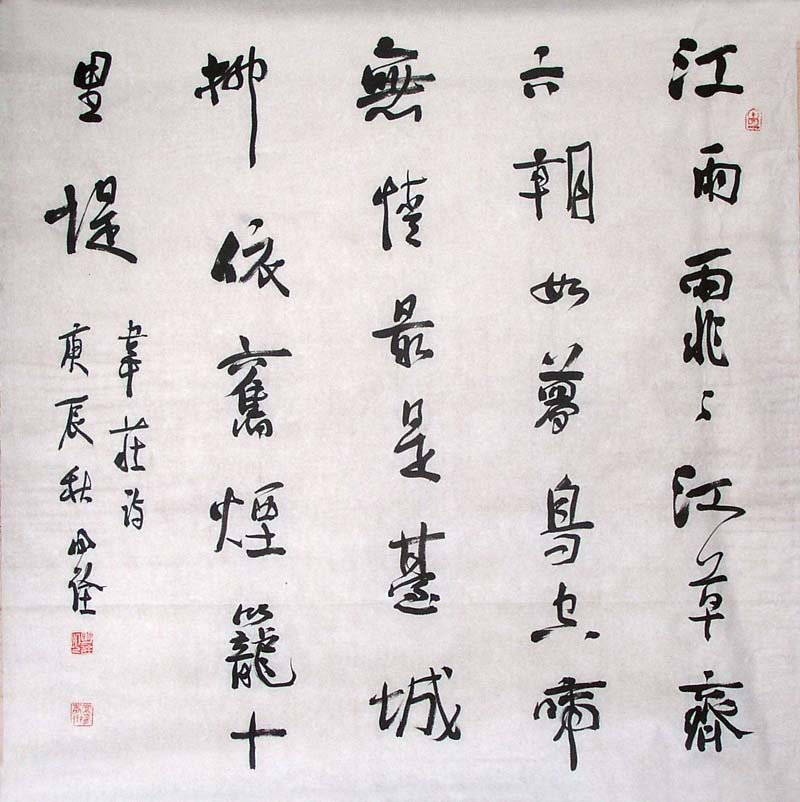 江雨霏々江草齊
六朝如夢鳥空啼
無情最是臺城
柳依舊煙籠十
里堤
韋莊詩
庚辰秋